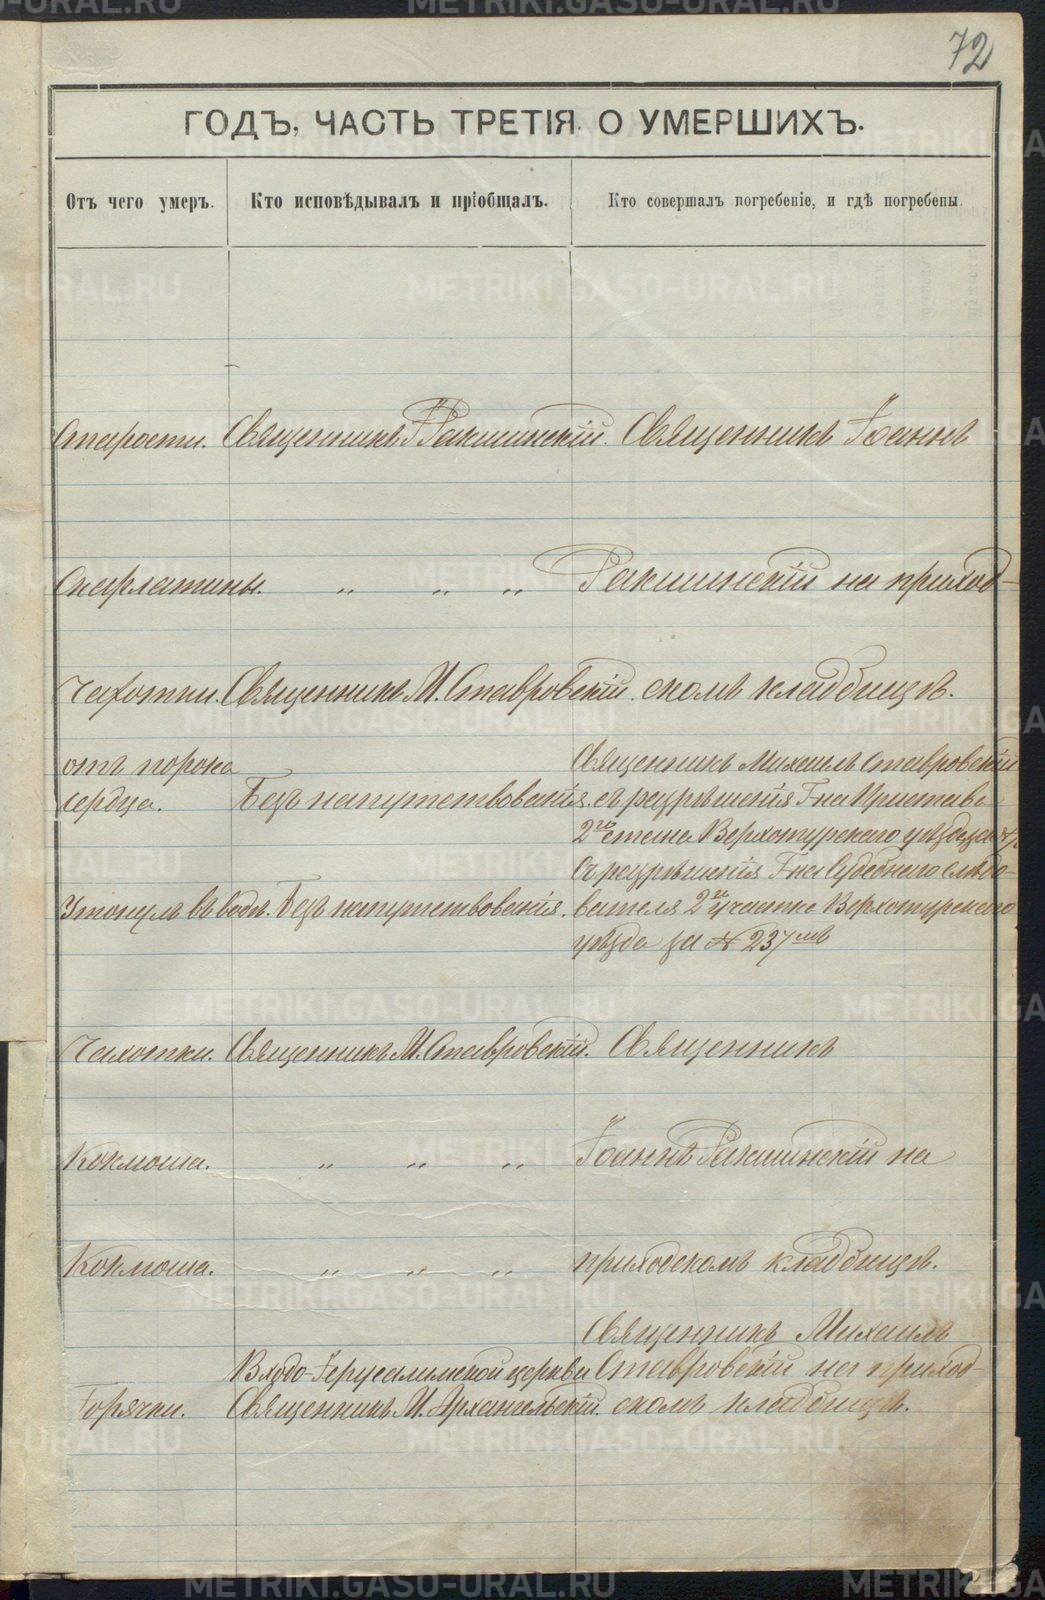 72
ГОДЪ, ЧАСТЬ ТРЕТІЯ. О УМЕРШИХЪ.
Отъ чего умеръ. Кто исповѣдывалъ и пріобщалъ. Кто совершалъ погребеніе, и гдѣ погребены.
Старости. Священникъ І Ракшинскій. Священникъ Іоаннъ
Скарлатины. „ „ „ Ракшинскій на приход-
Чахотки. Священникъ М. Ставровскій. скомъ кладбищѣ.
отъ порока
сердца. Безъ напутствованія.
Священникъ Михаилъ Ставровскій
съ разрѣшенія Г на Пристава
2го стана Верхотурскаго уѣзда за №
Утонулъ въ водѣ. Безъ напутствованія.
Съ разрѣшенія Г на Судебнаго слѣдо-
вателя 2го участка Верхотурскаго
уѣзда за № 237мъ
Чахотки. Священникъ М. Ставровскій. Священникъ
Коклюша. „ „ „ Іоаннъ Ракшинскій на
Коклюша. „ „ „ приходскомъ кладбищѣ.
Священникъ Михаилъ
Входо-Іерусалимской церкви Ставровскій на приход-
Горячки. Священникъ И. Архангельскій. скомъ кладбищѣ.
METRIKI.GASO-URAL.RU